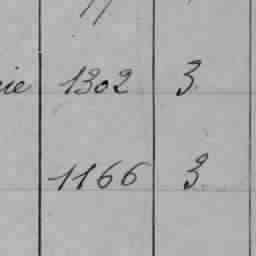 1302 3.
1166 3.